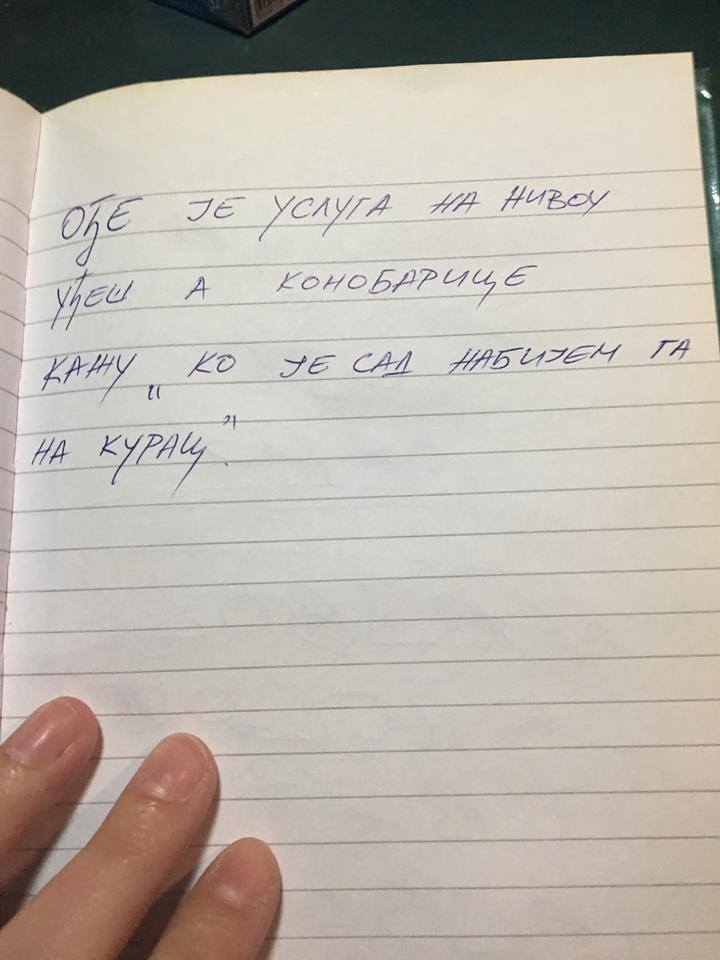 ОЂЕ ЈЕ УСЛУГА НА НИВОУ
УЂЕШ А КОНОБАРИЦЕ
КАЖУ „КО ЈЕ САД НАБИЈЕМ ГА
НА КУРАЦ”.